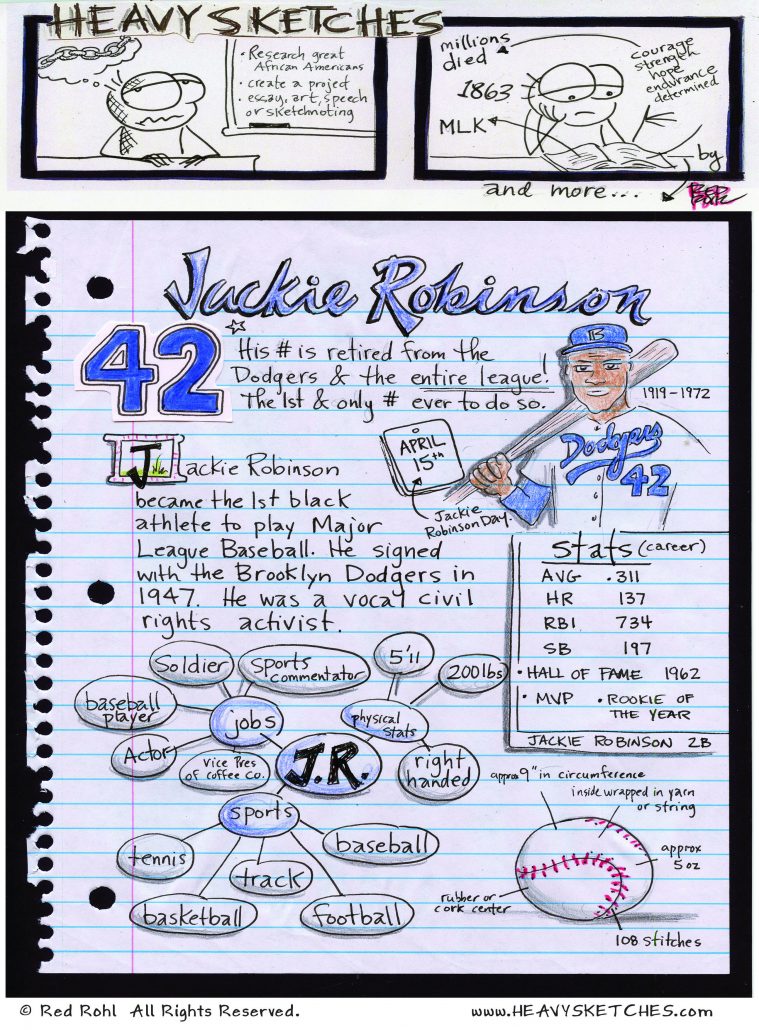 HEAVY SKETCHES
• Research great
African Americans
• create a project
• essay, art, speech
or sketchnoting
millions
died
1863
MLK
courage
strength
hope
endurance
determined
by
RED
ROHL
and more...
Jackie Robinson
42
His # is retired from the
Dodgers & the entire league!
The 1st & only # ever to do so.
B
1919-1972
Dodgers
42
APRIL
15th
Jackie
Robinson Day.
J
Jackie Robinson
became the 1st black
athlete to play Major
League Baseball. He signed
with the Brooklyn Dodgers in
1947. He was a vocal civil
rights activist.
Stats (career)
AVG .311
HR 137
RBI 734
SB 197
• HALL OF FAME 1962
• MVP • ROOKIE OF
THE YEAR
JACKIE ROBINSON 2B
Soldier
Sports
commentator
baseball
player
jobs
Actor
Vice Pres
of coffee co.
5'11
200lbs
physical
stats
right
handed
J.R.
sports
tennis
track
baseball
basketball
football
approx 9" in circumference
inside wrapped in yarn
or string
approx
5 oz
rubber or
cork center
108 stitches
© Red Rohl All Rights Reserved.
www.HEAVYSKETCHES.com